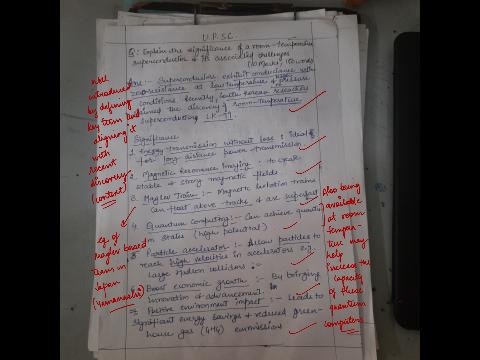 U.P.S.C.
Q: Explain the significance of a room-temperature
superconductor & its associated challenges
(10 Marks, 150 words)
Ans:- Superconductors exhibit conductance with
zero resistance at low temperature & high pressure
conditions. Recently, South Korean researchers
claimed the discovery of room-temperature
superconducting LK-99
Significance
1. Energy transmission without loss: ideal
for long distance power transmission
2. Magnetic Resonance Imaging :- to create
stable & strong magnetic fields
3. Maglev Train :- Magnetic levitation trains
can float above tracks, & are superfast
4. Quantum Computing :- Can achieve quantum
scales (high potential)
5. Particle accelerator :- Allow particles to
reach high velocities in accelerators e.g.
Large Hydron colliders :-
6. Boost economic growth :- By bringing
innovation & advancement
7. Positive environment impact :- Leads to
significant energy savings & reduced green-
house gas (GHG) emissions
well
introduced
by defining
key term and
aligning it
with
recent
discovery
(context)
eg of
Maglev based
train in
Japan
(Yamanashi)
Also being
available
at room
tempera-
ture may
help
increase the
capacity
of these
quantum
computers